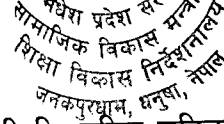 मधेश प्रदेश सर
सामाजिक विकास मन्त्रा
शिक्षा विकास निर्देशनालय
जनकपुरधाम, धनुषा, नेपाल